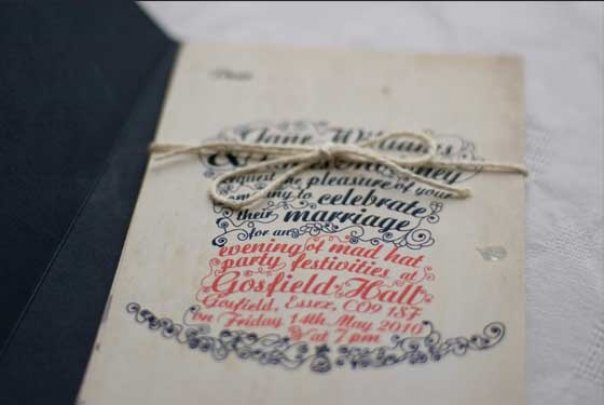 Jane Williams
&
request the pleasure of your
company to celebrate
their marriage
for an
evening of mad hat
party festivities at
Gosfield Hall
Gosfield, Essex, CO9 1SF
on Friday 14th May 2010
at 7 pm